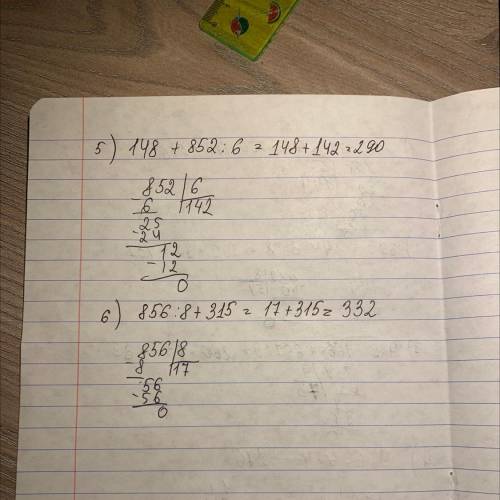 5) 148 + 852 : 6 = 148 + 142 = 290
852 | 6
- 6 142
25
- 24
12
- 12
0
6) 856 : 8 + 315 = 17 + 315 = 332
856 | 8
- 8 17
56
- 56
0